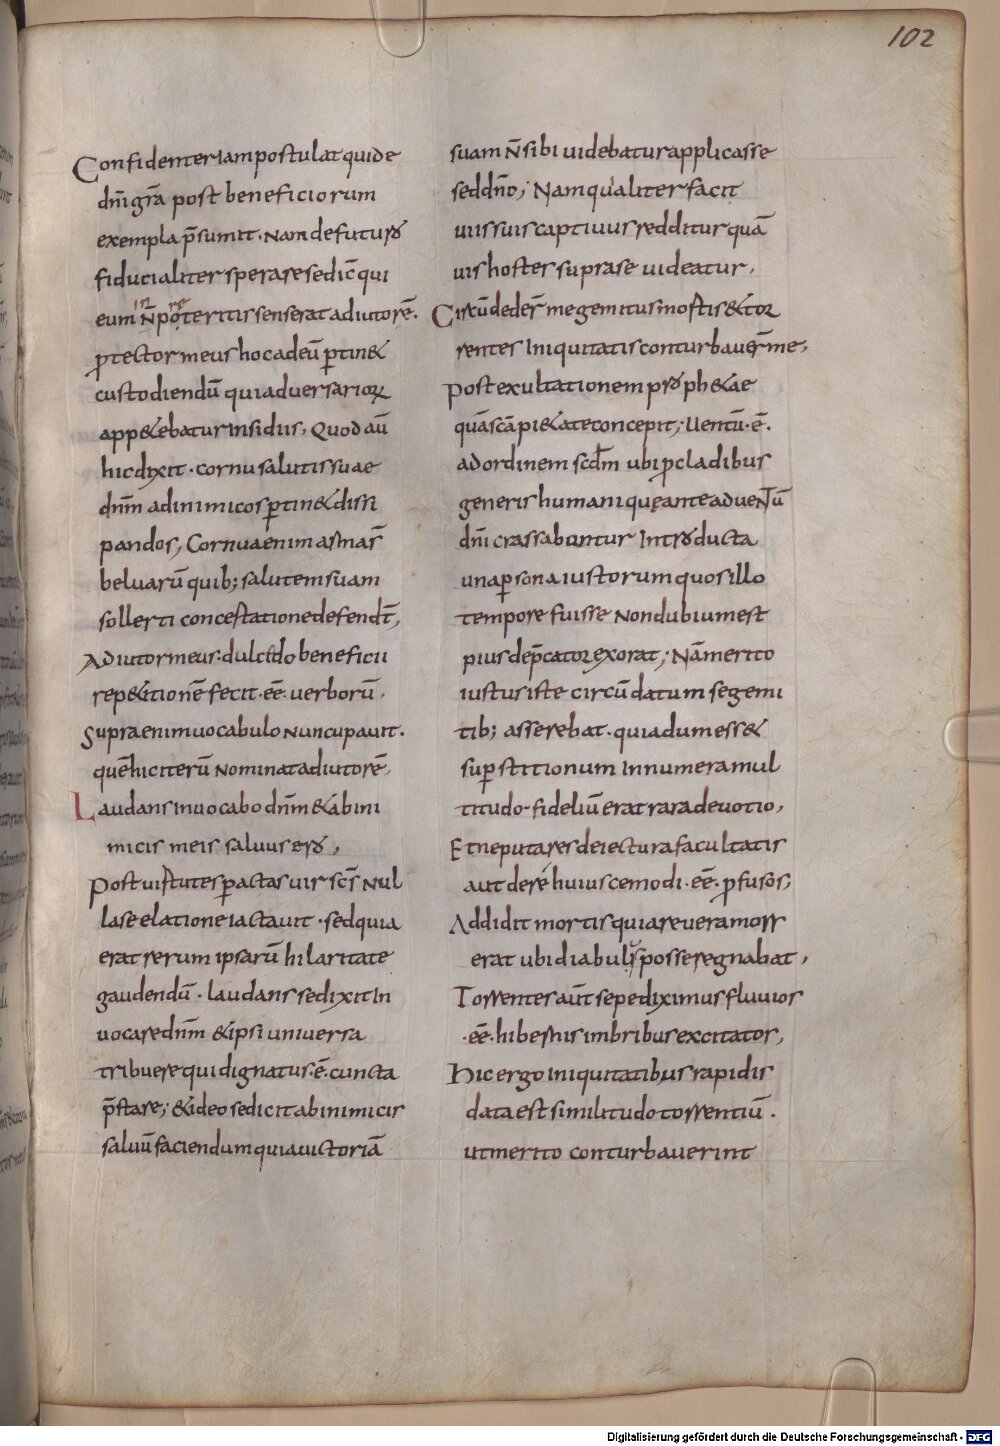 102
Confidenter iam postulat qui de
dn̄i gr̄a post beneficiorum
exempla p̄sumit. Nam de futuro
fiducialiter sperare se dic̄ qui
eum N̄ poteritis senserat adiutorē.
in re
ꝓtector meus hoc ad eū ꝑtin&
custodiendū qui aduersarioꝝ
app&ebatur insidiis, Quod aū
hic dixit · cornu salutis suae
dn̄m ad inimicos ꝑtin& dissi
pandos, Cornua enim as mar̄
beluarū quib; salutem suam
sollerti concestatione defendt̄,
Adiutor meus · dulcido beneficii
rep&itionē fecit · eē · uerborū ·
Supra enim uocabulo nuncupauit ·
quē hic iterū Nominat adiutorē,
Laudans inuocabo dn̄m & ab ini
micis meis saluus ero,
Post uirtutes ꝑactas uir scs̄ Nul
la se elatione iactauit · sed quia
erat rerum ipsarū hilaritate
gaudendū · laudans se dixit In
uocare dn̄m & ipsi uniuersa
tribuere qui dignatus · ē · cuncta
p̄stare; & ideo se dicit ab inimicis
saluū faciendum quia uictoriā
suam N̄ sibi uidebatur applicasse
sed dn̄o; Nam qualiter facit
uiis suis captiuus redditur quā
uis hostes supra se uideatur,
Circū deder̄ me gemitus mortis & tor
rentes Iniquitatis conturbauer̄ me,
post exultationem proph&ae
quā scā pi&ate concepit; Uentū · ē ·
ad ordinem scd̄m ubi ꝓ cladibus
generis humani quę ante aduentū
dn̄i crassabantur Introducta
una ꝑsona iustorum quos illo
tempore fuisse Non dubium est
pius dep̄cator exorat; Nā merito
iustus iste circū datum se gemi
tib; asserebat · quia dum ess&
suꝑstitionum Innumera mul
titudo · fideliū erat rara deuotio,
Et ne putares de iectura facultatis
aut de re huiuscemodi · eē · ꝓfusos,
Addidit mortis quia reuera mors
erat ubi diabulus posse regnabat,
Torrentes aūt sepe diximus fluuios
· eē · hibernis imbribus excitator,
Hic ergo iniquitatibus rapidis
data est similitudo torrentiū ·
ut merito conturbauerint
Digitalisierung gefördert durch die Deutsche Forschungsgemeinschaft - DFG